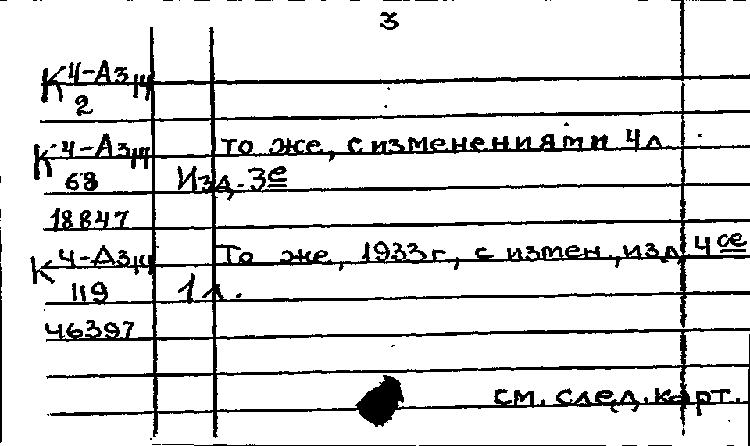 3
К 4-А3/14
2
К 4-А3/14 то же, с изменениями 4 л
68 Изд. 3е
18847
К 4-А3/14 То же, 1933 г., с измен., изд 4ое
119 1 л.
46397
см. след. карт.